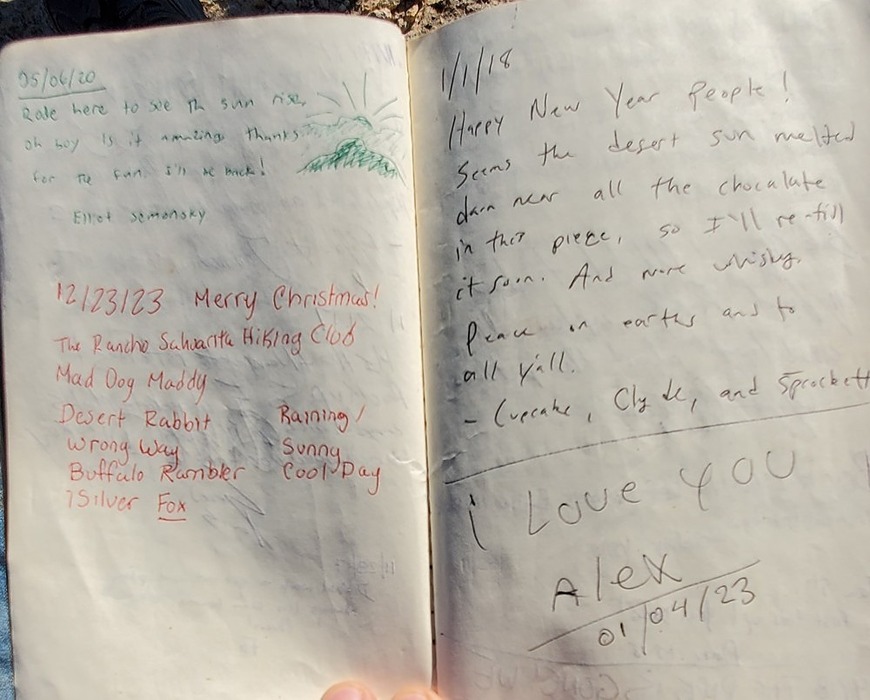 05/06/20
Rode here to see th sun rise,
oh boy is it amazing thanks
for the fun. I'll be back!
Elliot Simonsky
12/23/23 Merry Christmas!
The Rancho Sahuarita Hiking Club
Mad Dog Maddy
Desert Rabbit
Wrong Way
Buffalo Rambler
Silver Fox
Raining/
Sunny
Cool Day
1/1/18
Happy New Year People!
Seems the desert sun melted
darn near all the chocalate
in this piece, so I'll re-fill
it soon. And more whisky.
Peace on earths and to
all y'all.
- Cupcake, Clyde, and Sprockett
i Love YOU
Alex
01/04/23